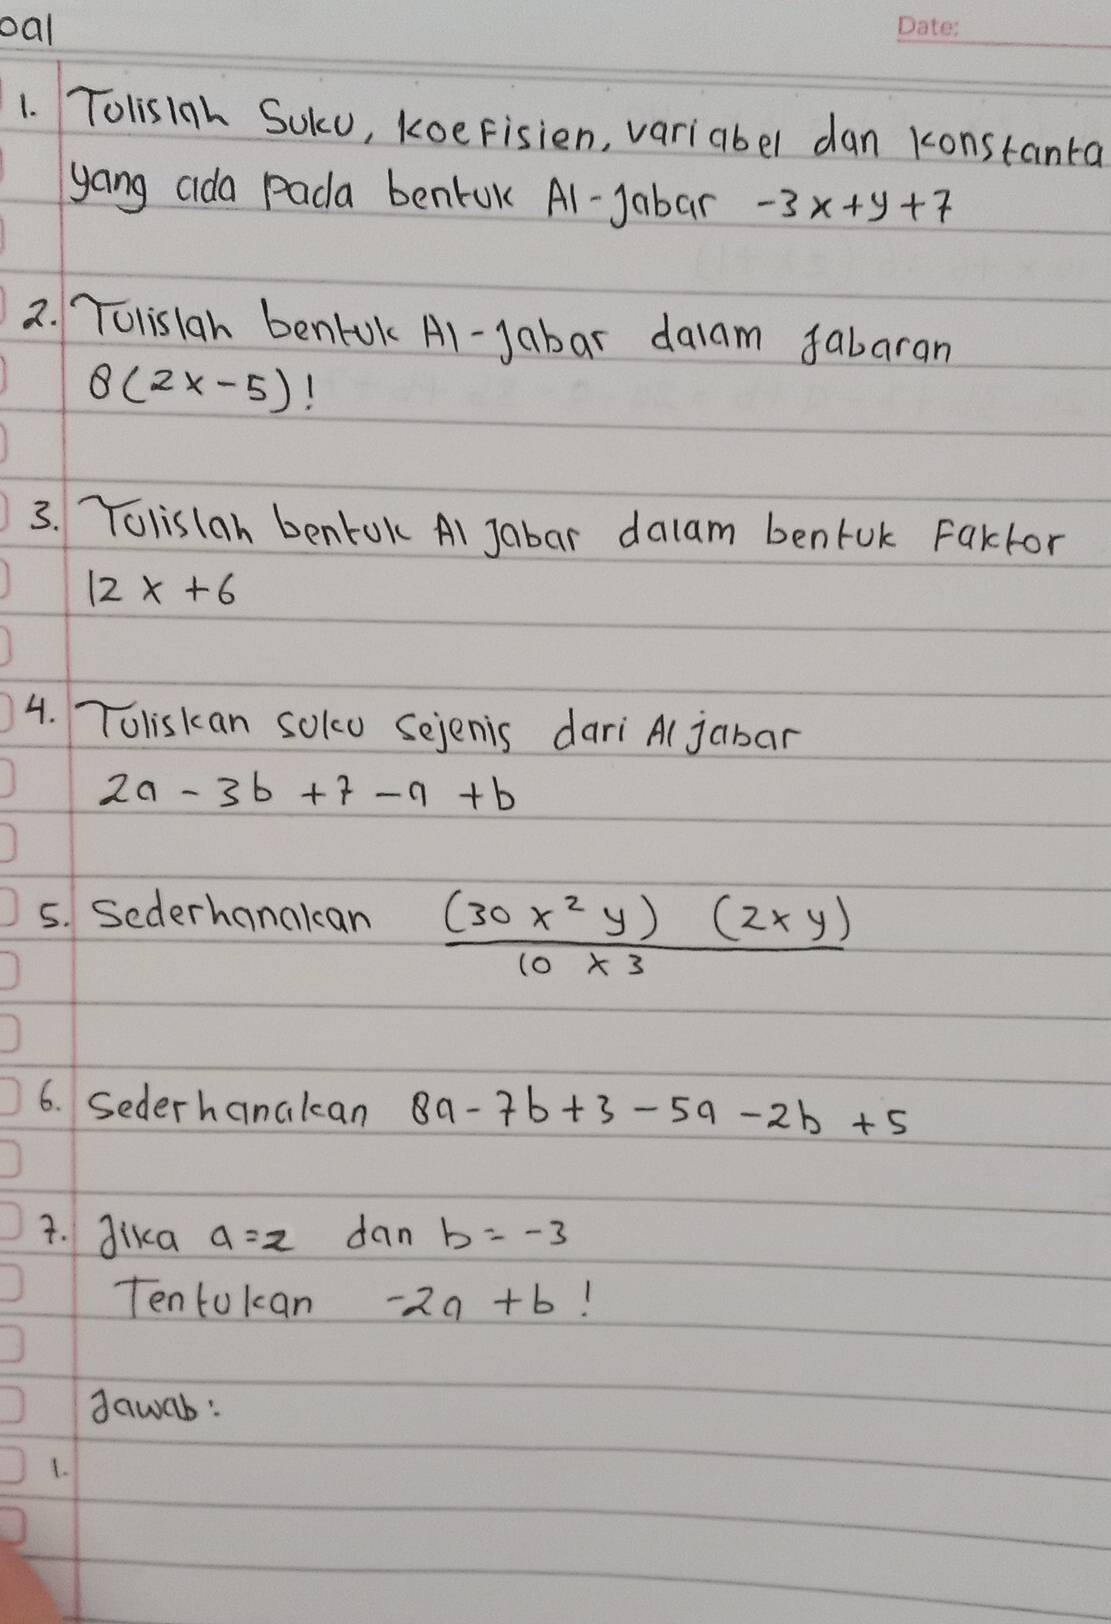 oal
Date:
1. Tulislah Suku, koefisien, variabel dan konstanta
yang ada pada bentuk Al-jabar -3x+y+7
2. Tulislah bentuk Al-jabar dalam jabaran
8(2x-5)!
3. Tulislah bentuk Al jabar dalam bentuk Faktor
12x+6
4. Tuliskan suku sejenis dari Al jabar
2a-3b+7-a+b
5. Sederhanakan (30x²y) (2xy)
10 x 3
6. Sederhanakan 8a-7b+3-5a-2b+5
7. Jika a=2 dan b=-3
Tentukan -2a+b!
Jawab:
1.